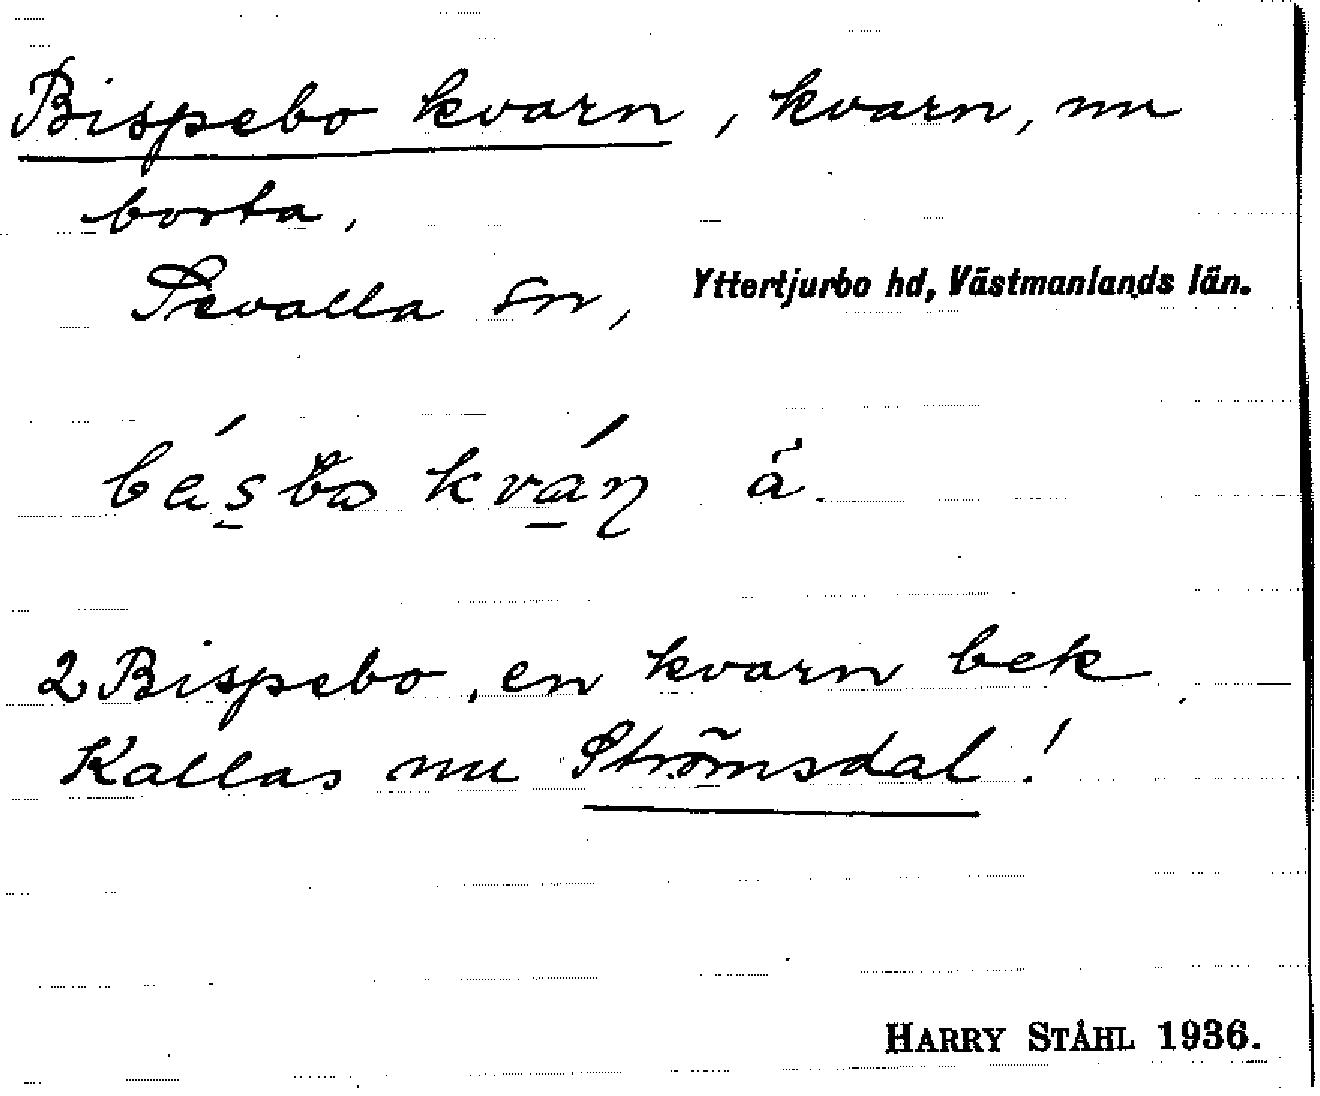 Bispebo kvarn, kvarn, nu
borta,
Sevalla sn, Yttertjurbo hd, Västmanlands län.
kván á.
2 Bispebo, en kvarn bek
Kallas nu Strömsdal!
HARRY STÅHL 1936.